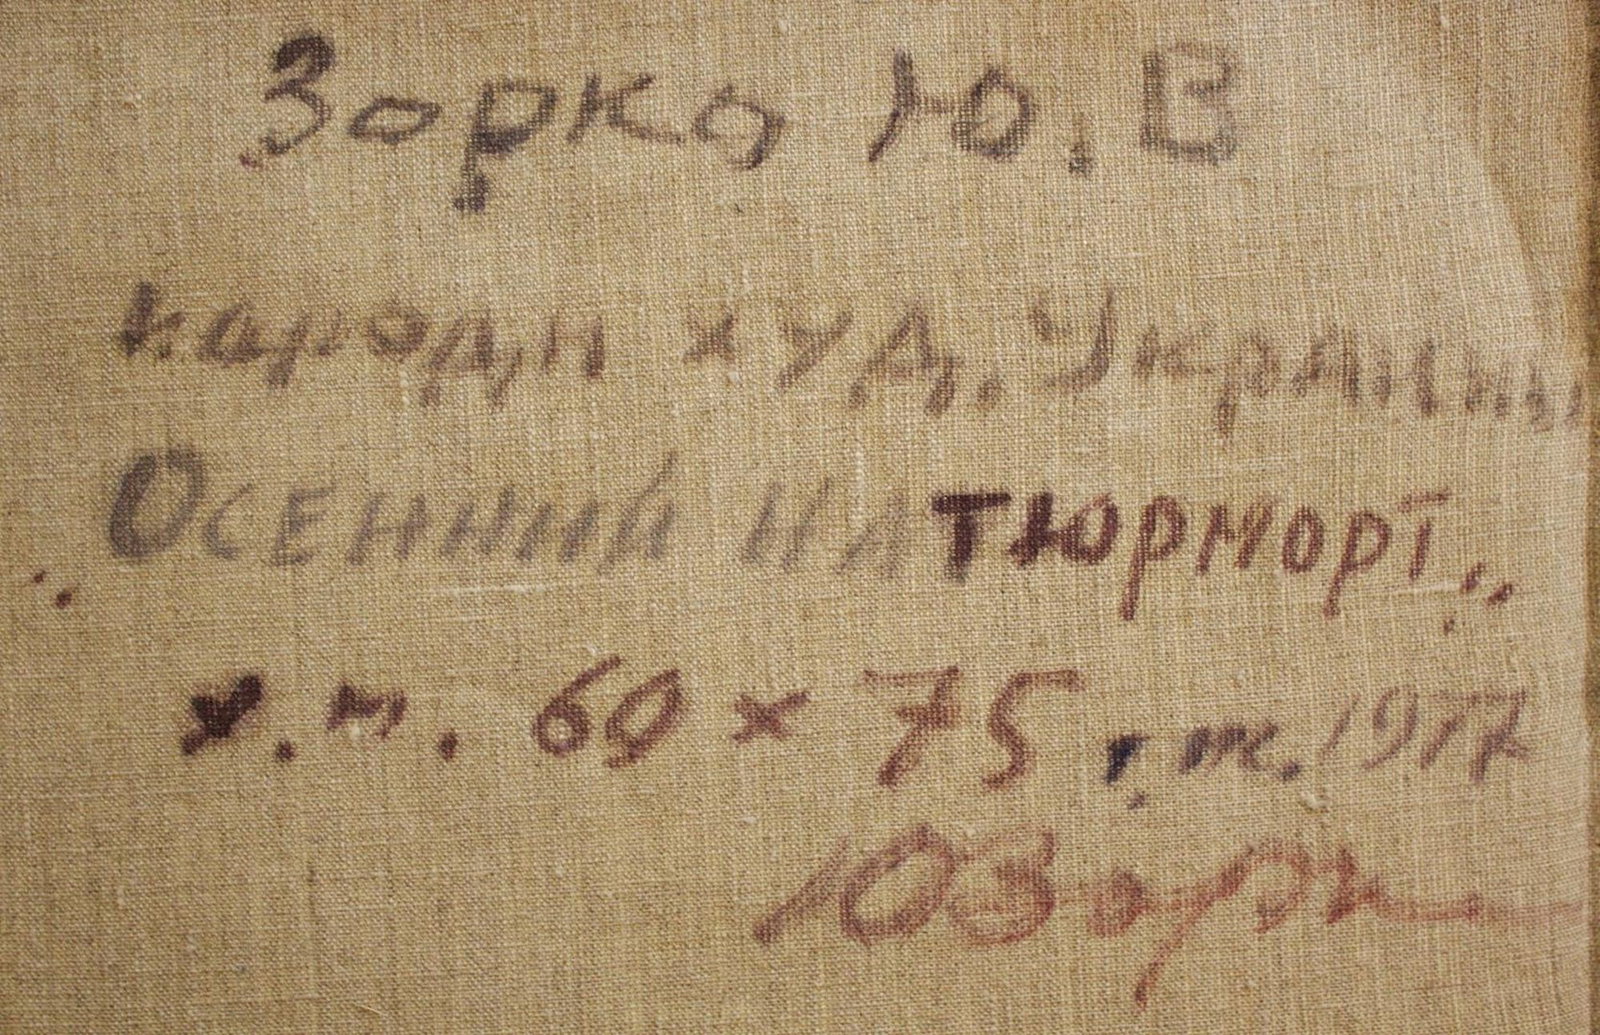 Зорко Ю. В
народн худ. Украины
„Осенний натюрморт„
х.м. 60 х 75 1977
ЮЗорк